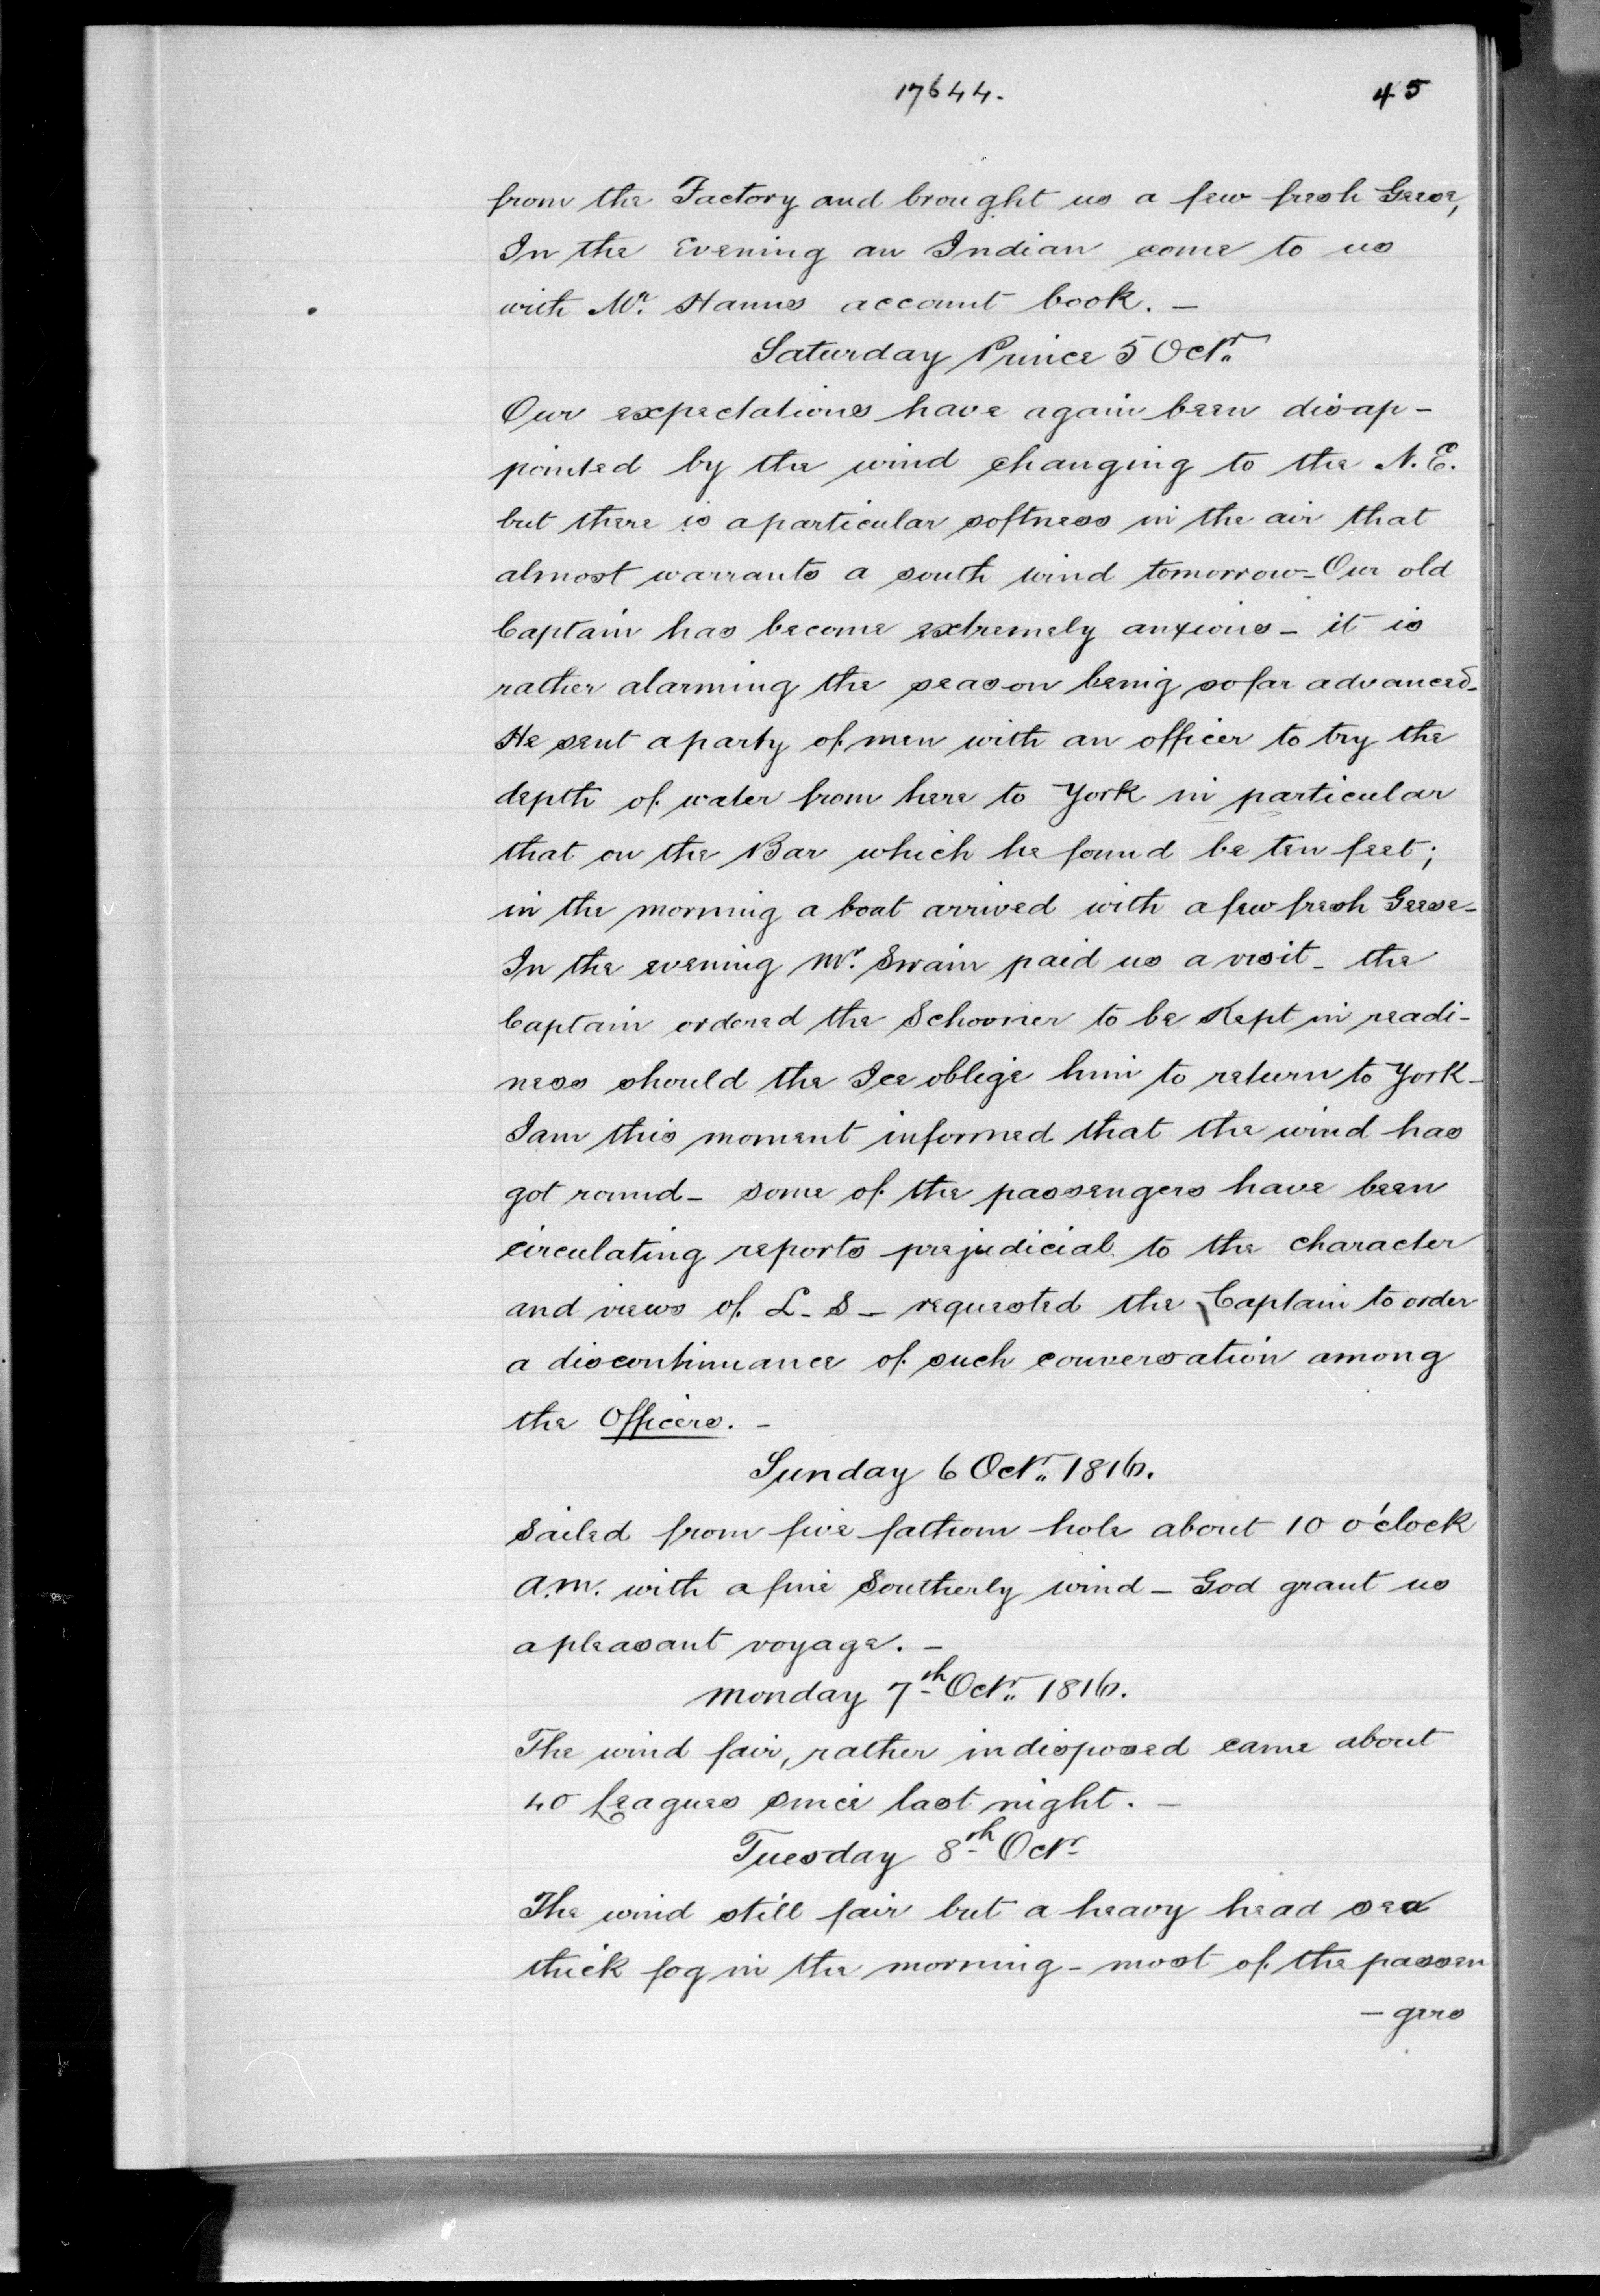 17644.
45
from the Factory and brought us a few fresh Geese,
In the Evening an Indian come to us
with Mr. Hanns account book. –
Saturday Prince 5 Octr.
Our expectations have again been disap-
pointed by the wind changing to the N.E.
but there is a particular softness in the air that
almost warrants a south wind tomorrow – Our old
Captain has become extremely anxious – it is
rather alarming the season being so far advanced –
He sent a party of men with an officer to try the
depth of water from here to York in particular
that on the Bar which he found be ten feet;
in the morning a boat arrived with a few fresh Geese –
In the evening Mr. Swain paid us a visit – the
Captain ordered the Schooner to be Kept in readi-
ness should the Ice oblige him to return to York –
I am this moment informed that the wind has
got round – some of the passengers have been
circulating reports prejudicial to the character
and views of L. S – requested the Captain to order
a discontinuance of such conversation among
the Officers. –
Sunday 6 Octr. 1816.
Sailed from five fathom hole about 10 o'clock
A.M. with a fine Southerly wind – God grant us
a pleasant voyage. –
Monday 7th Octr. 1816.
The wind fair, rather indisposed came about
40 Leagues since last night. –
Tuesday 8th Octr
The wind still fair but a heavy head sea
thick fog in the morning – most of the passen
– gers